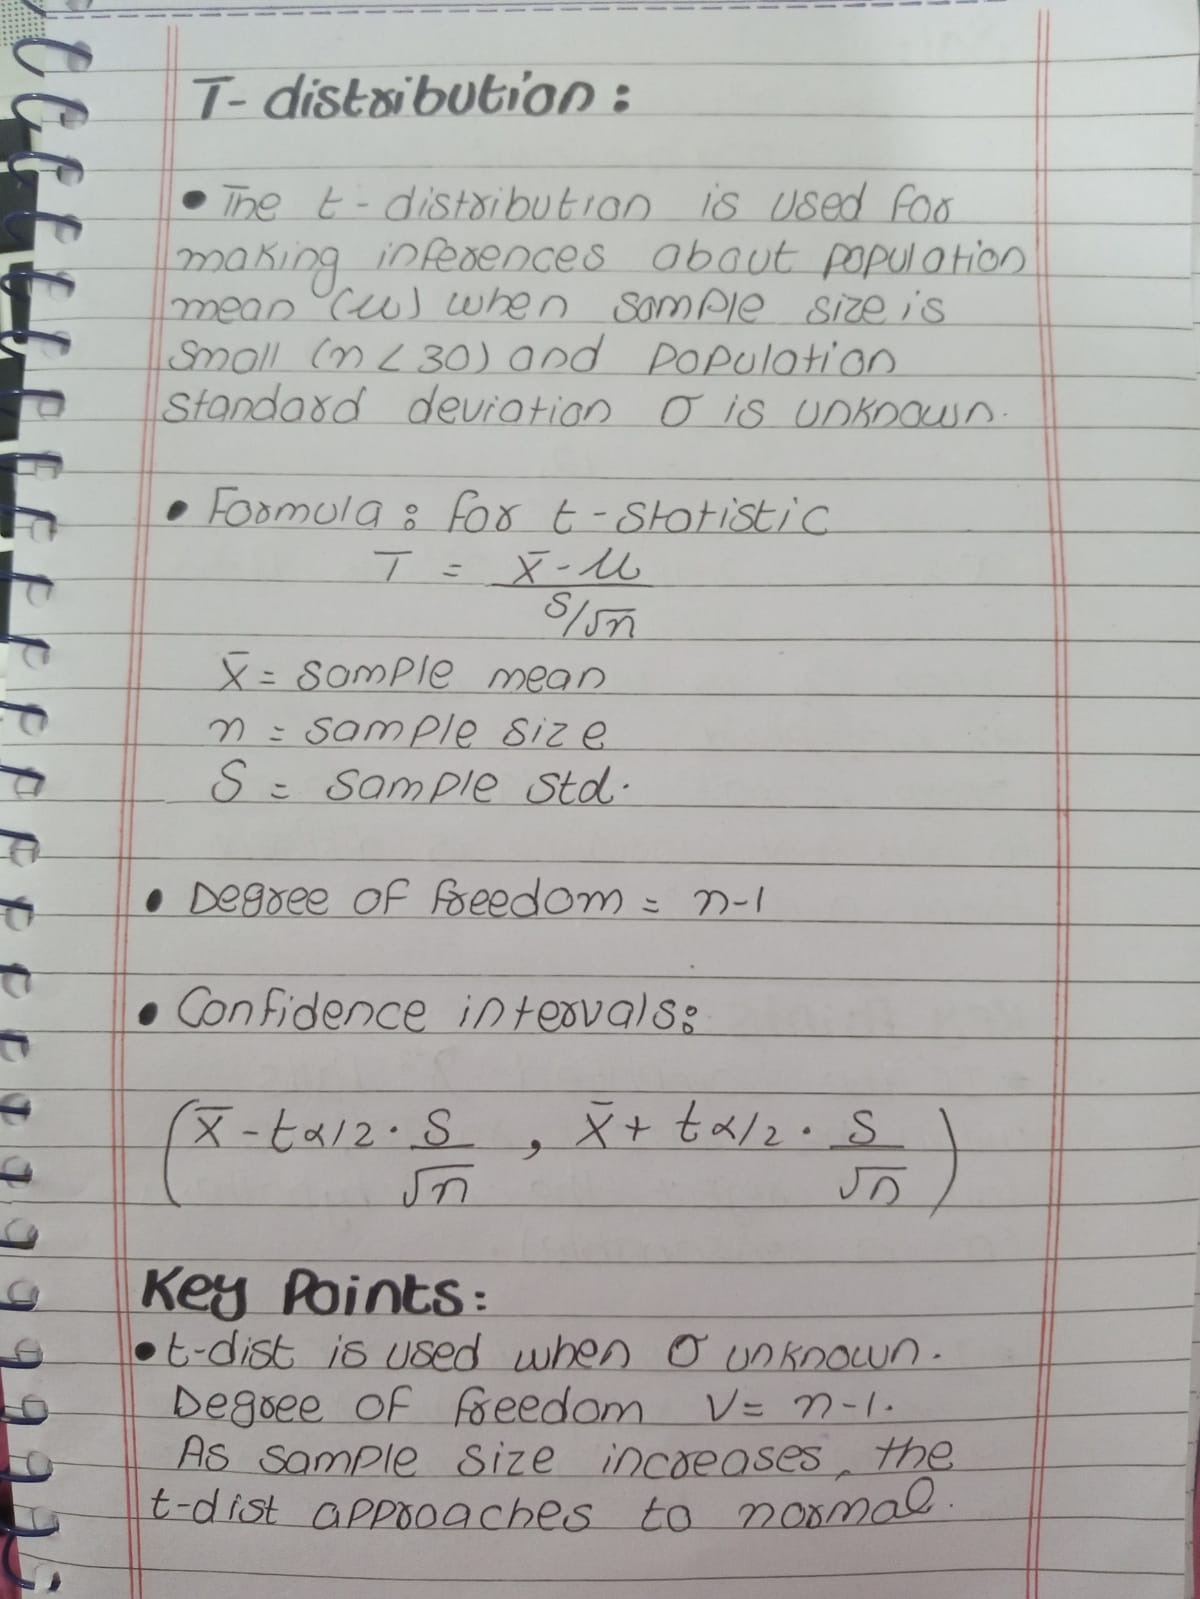 T-distribution:
• The t-distribution is used for
making inferences about population
mean (μ) when sample size is
small (n < 30) and population
standard deviation σ is unknown.
• Formula: for t-statistic
T = x̄-μ
S/√n
x̄ = sample mean
n = sample size
S = sample std.
• Degree of freedom = n-1
• Confidence intervals:
(x̄ - tα/2 · S/√n , x̄ + tα/2 · S/√n)
Key Points:
• t-dist is used when σ unknown.
Degree of freedom V = n-1.
As sample size increases, the
t-dist approaches to normal.